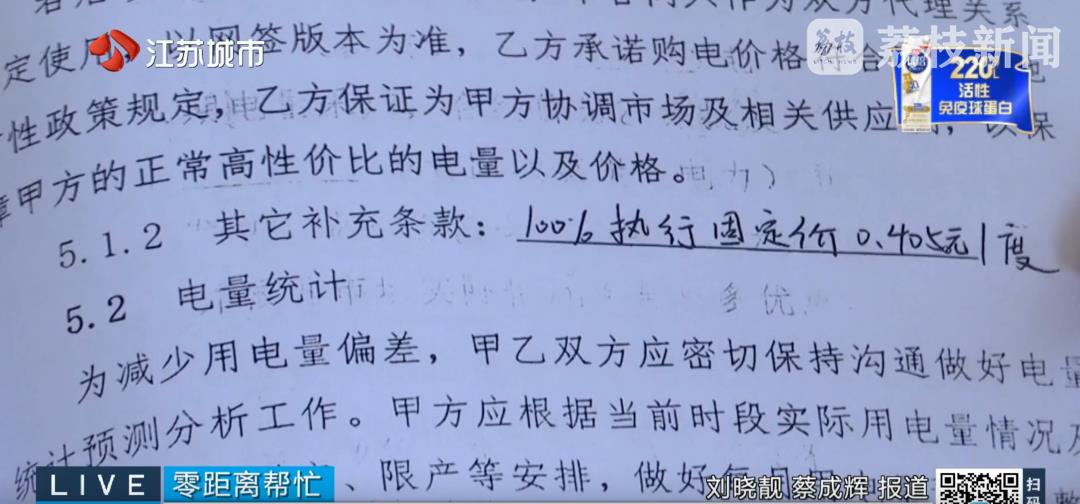 作为双方代理关系
荔枝新闻
江苏城市
定使用,以网签版本为准,乙方承诺购电价格
220
活性
免疫球蛋白
性政策规定,乙方保证为甲方协调市场及相关供应
保
障甲方的正常高性价比的电量以及价格。
5.1.2 其它补充条款: 100%执行固定价0.405元/度
5.2 电量统计
为减少用电量偏差,甲乙双方应密切保持沟通做好电量
统计预测分析工作。甲方应根据当前时段实际用电量情况及
、限产等安排,做好每月用
LIVE 零距离帮忙
刘晓靓 蔡成辉 报道
扫码